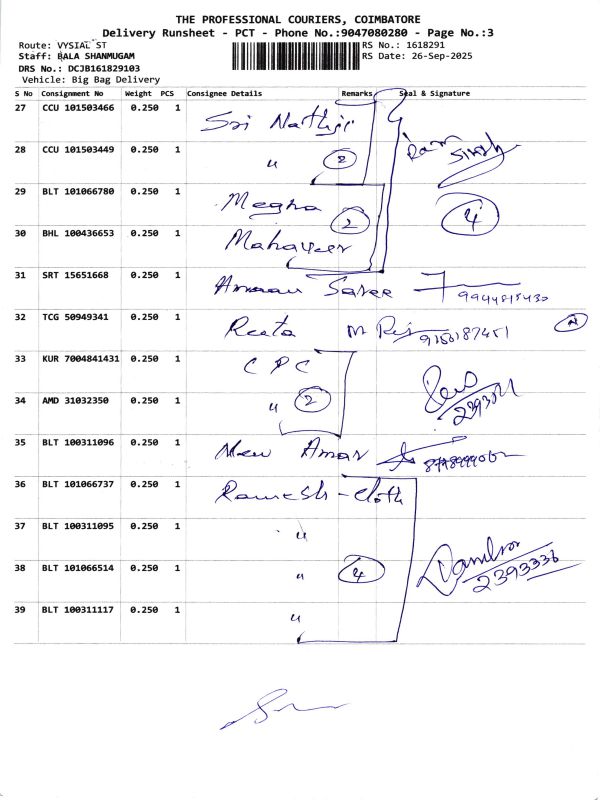 THE PROFESSIONAL COURIERS, COIMBATORE
Delivery Runsheet - PCT - Phone No.:9047080280 - Page No.:3
Route: VYSIAL ST
RS No.: 1618291
Staff: BALA SHANMUGAM
RS Date: 26-Sep-2025
DRS No.: DCJB161829103
Vehicle: Big Bag Delivery
S No Consignment No Weight PCS Consignee Details Remarks Seal & Signature
27 CCU 101503466 0.250 1 Sri Nathji
28 CCU 101503449 0.250 1 " 2 Ram Singh
29 BLT 101066780 0.250 1 Megha 2 4
30 BHL 100436653 0.250 1 Mahaveer
31 SRT 15651668 0.250 1 Saree
32 TCG 50949341 0.250 1
33 KUR 7004841431 0.250 1 CPC
34 AMD 31032350 0.250 1 " 2
35 BLT 100311096 0.250 1 New Amar
36 BLT 101066737 0.250 1 Ramesh-Cloth
37 BLT 100311095 0.250 1 "
38 BLT 101066514 0.250 1 " 4 2393336
39 BLT 100311117 0.250 1 "